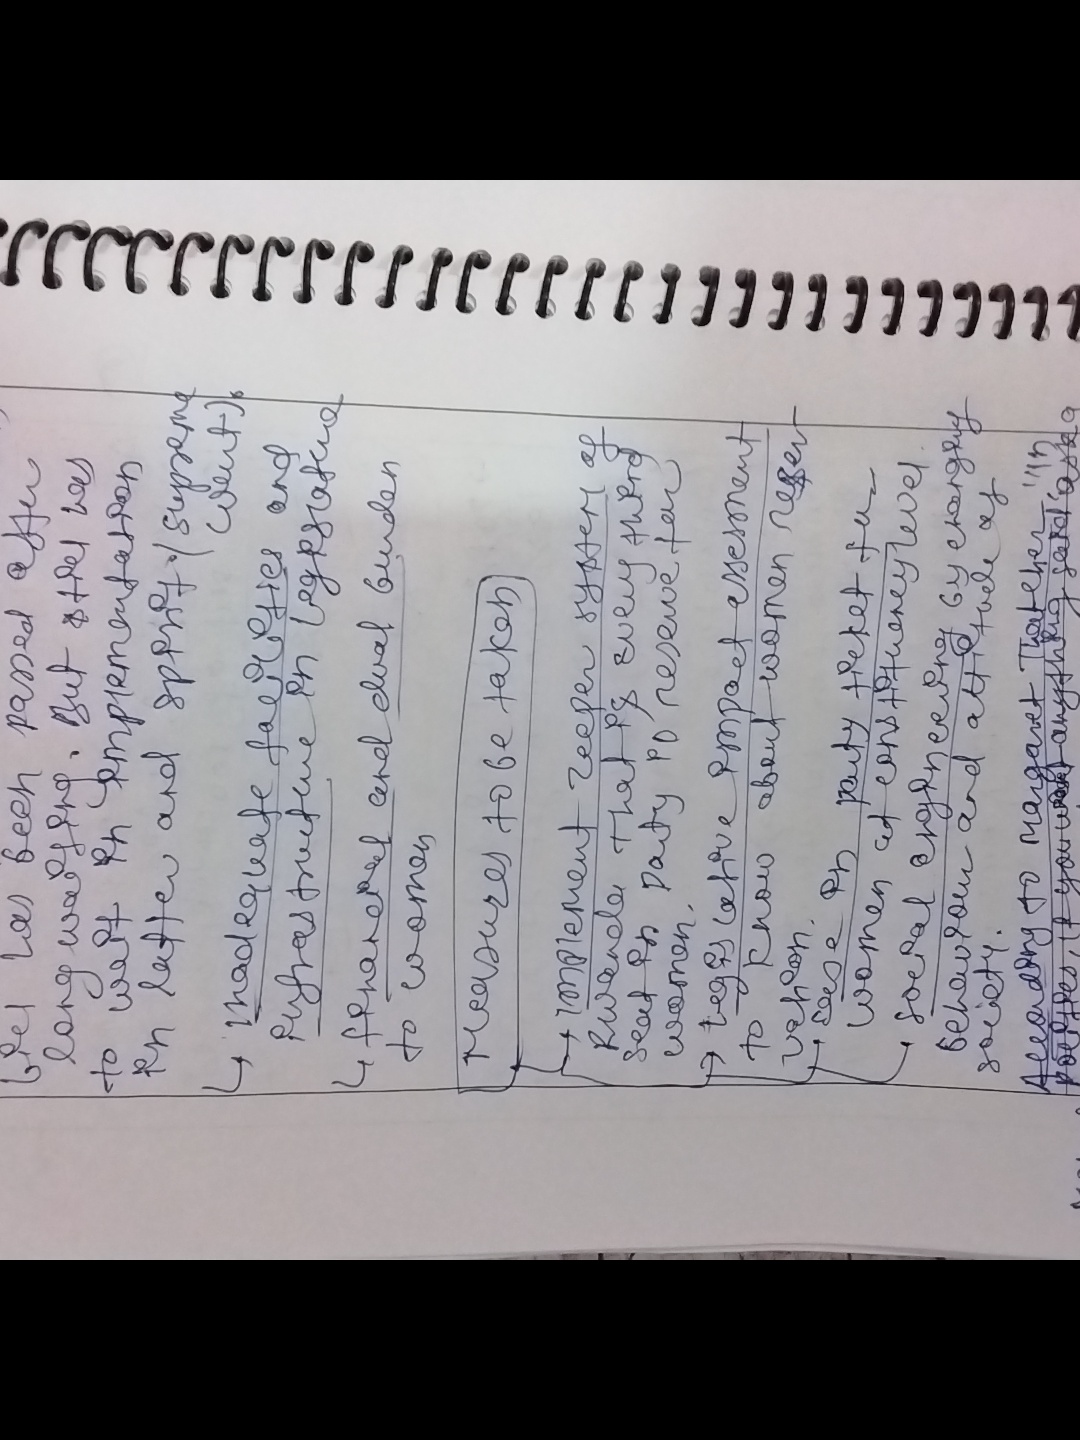 Bill has been passed after
long waiting. But still has
to wait in implementation
in letter and spirit. (Supreme
Court).
↳ Inadequate facilities and
infrastructure in legislative
↳ financial and dual burden
to women
Measures to be taken
→ Implement zeeper system of
Rwanda that is every third
seat in party is reserve for
women.
→ Legislative impact assessment
to know about women reser
vation.
→ Rise in party ticket for
women at constituency level.
→ Social engineering by changing
behaviour and attitude of
society.
According to Margaret Thatcher "In
politics, if you want anything said ask a